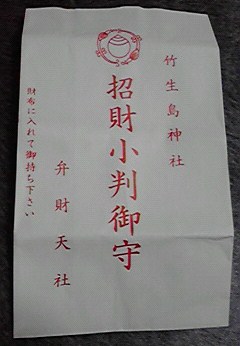 竹生島神社
招財小判御守
弁財天社
財布に入れて御持ち下さい